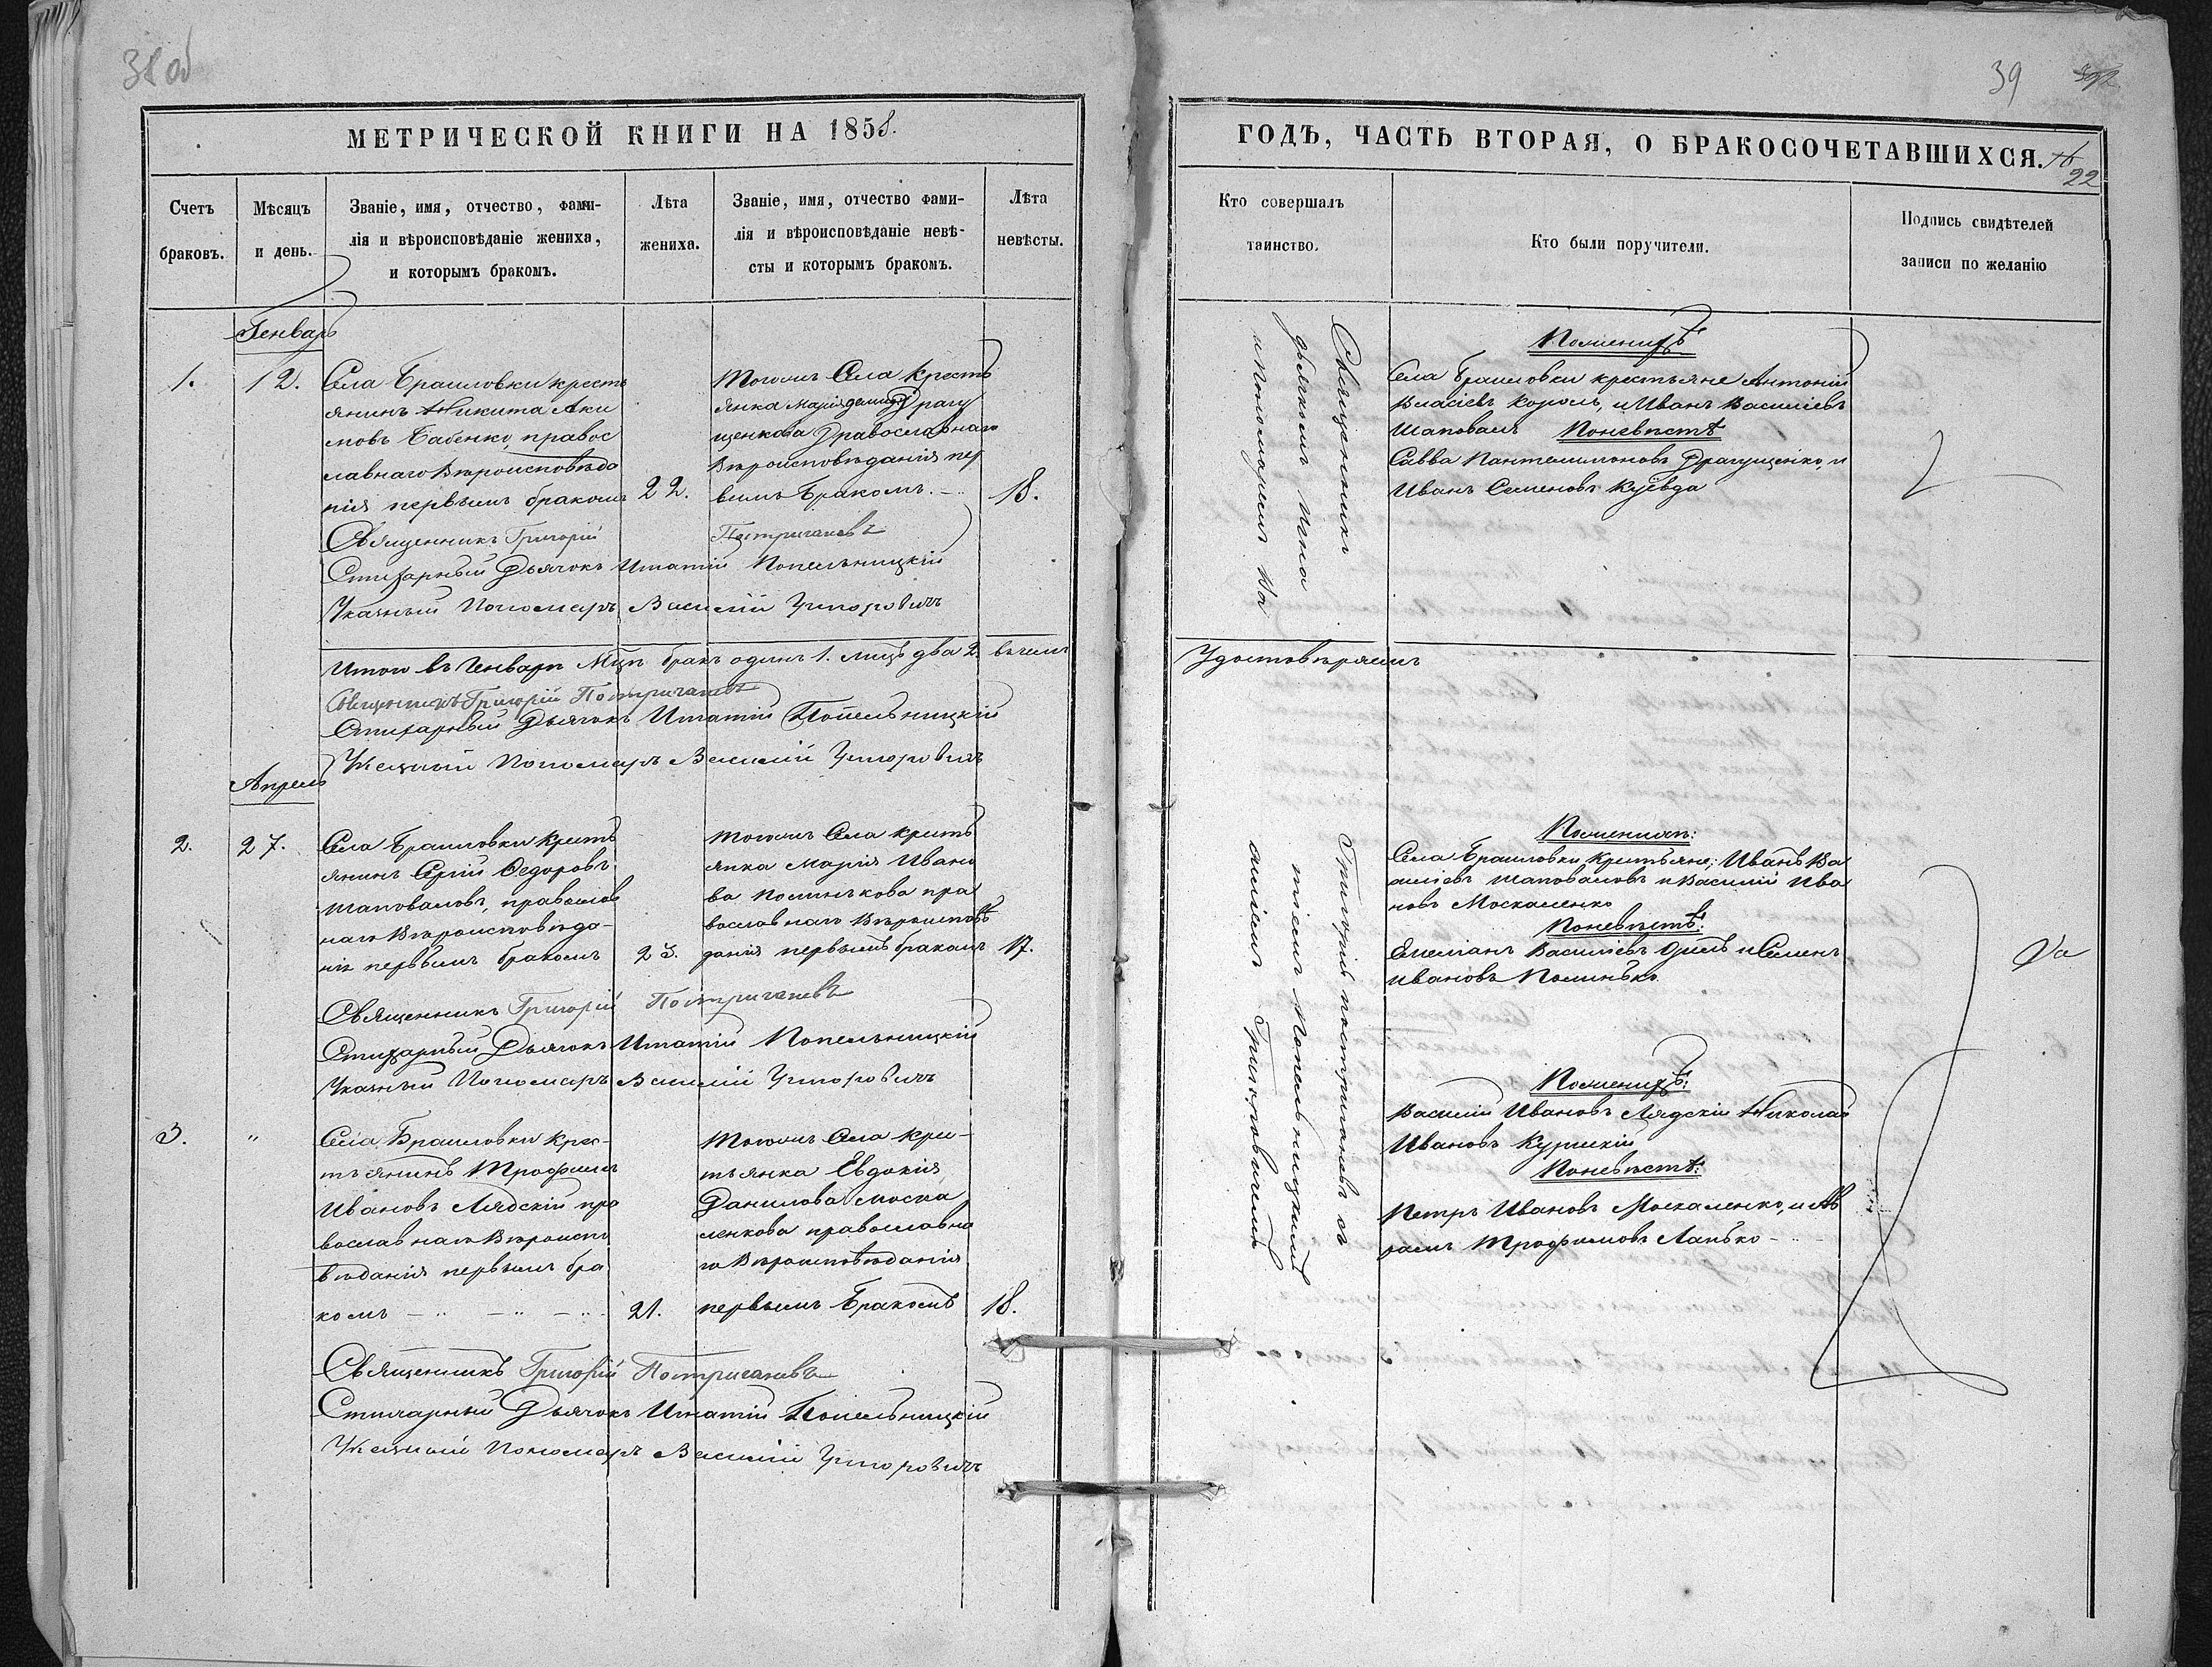 38 об
МЕТРИЧЕСКОЙ КНИГИ НА 1858.
Счетъ браковъ.
Мѣсяцъ и день.
Званіе, имя, отчество, фами-
лія и вѣроисповѣданіе жениха,
и которымъ бракомъ.
Лѣта жениха.
Званіе, имя, отчество фами-
лія и вѣроисповѣданіе невѣ-
сты и которымъ бракомъ.
Лѣта невѣсты.
Генварь
1.
12.
Села Браиловки кресть
янинъ Никита Аки
мовъ Бабенко, правос
лавнаго Вѣроисповѣда
нія первымъ бракомъ
22.
Тогожъ Села Кресть
янка Марія Драгу
щенкова Православнаго
Вѣроисповѣданія пер
вымъ Бракомъ.
18.
Священникъ Григорій Постригачевъ
Стихарный Дьячокъ Игнатій Попельницкій
Указный Пономарь Василій Григоровичъ
Итого въ Генварѣ Мцѣ бракъ одинъ 1. лицъ два 2. въ чемъ
Священникъ Григорій Постригачевъ
Стихарный Дьячокъ Игнатій Попельницкій
Указный Пономарь Василій Григоровичъ
Апрель
2.
27.
Села Браиловки Кресть
янинъ Сергій Ѳедоровъ
Шаповаловъ, православ
наго Вѣроисповѣда-
нія первымъ бракомъ
23.
Тогожъ Села Кресть
янка Марія Ивано
ва Полинькова пра
вославнаго Вѣроисповѣ
данія первымъ бракомъ
17.
Священникъ Григорій Постригачевъ
Стихарный Дьячокъ Игнатій Попельницкій
Указный Пономарь Василій Григоровичъ
3.
"
Села Браиловки Крес-
тьянинъ Трофимъ
Ивановъ Лядскій пра
вославнаго Вѣроиспо
вѣданія первымъ бра
комъ
21.
Тогожъ Села Крес-
тьянка Евдокія
Данилова Моска
ленкова православна
го Вѣроисповѣданія
первымъ Бракомъ
18.
Священникъ Григорій Постригачевъ
Стихарный Дьячокъ Игнатій Попельницкій
Указный Пономарь Василій Григоровичъ
39
ГОДЪ, ЧАСТЬ ВТОРАЯ, О БРАКОСОЧЕТАВШИХСЯ.
22
Кто совершалъ
таинство.
Кто были поручители.
Подпись свидѣтелей
записи по желанію
Священникъ
Григорій Постригачевъ съ
дьячкомъ Игна
тіемъ Попельницкимъ
и Пономаремъ Ва
силіемъ Григоровичемъ
По женихѣ
Села Браиловки крестьяне Антоній
Власіевъ Король, и Иванъ Василіевъ
Шаповалъ По невѣстѣ
Савва Пантелимоновъ Драгущенко и
Иванъ Семеновъ Куевда
Удостовѣряемъ
По женихѣ:
Села Браиловки Крестьяне; Иванъ Ва
силіевъ Шаповаловъ и Василій Ива
новъ Москаленко
По невѣстѣ:
Емеліанъ Василіевъ и Семенъ
Ивановъ Полинько
По женихѣ:
Василій Ивановъ Лядскій Николай
Ивановъ Курскій
По невѣстѣ:
Петръ Ивановъ Москаленко, и Ав
рамъ Трофимовъ Лапько